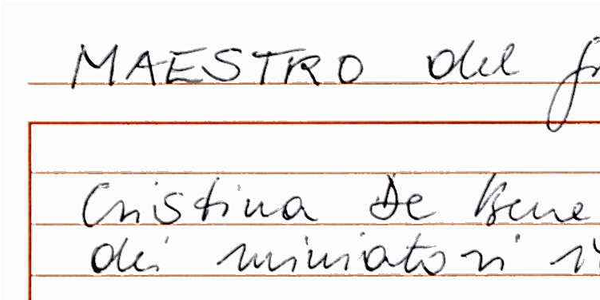 MAESTRO del
Cristina De Bene
dei miniatori